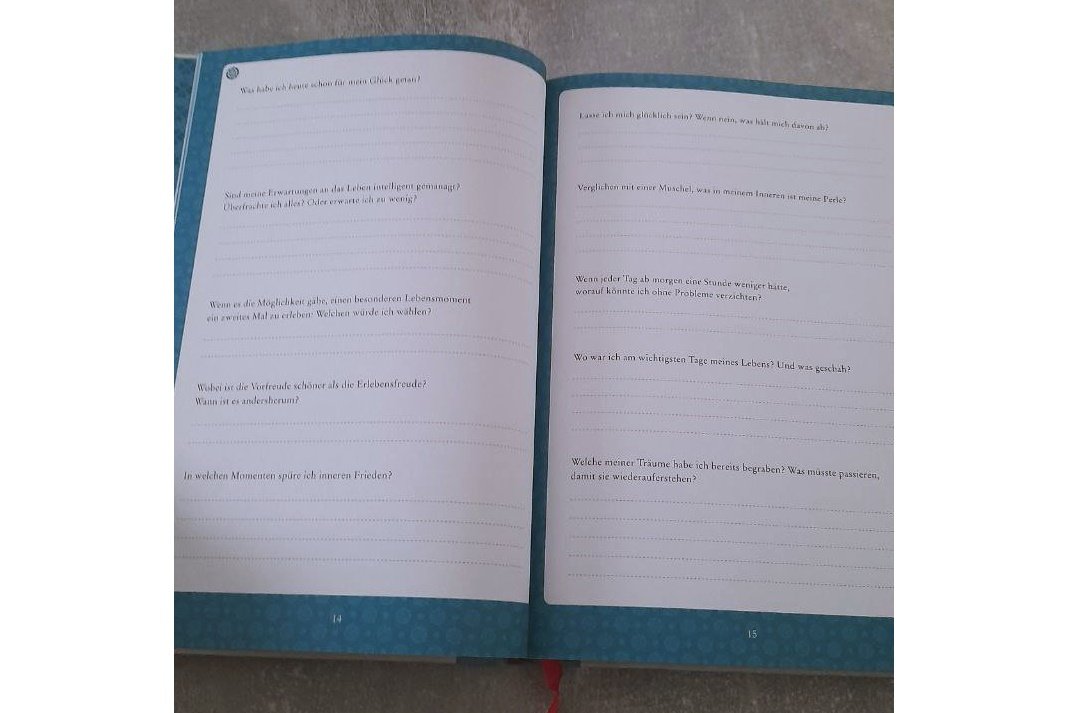 Was habe ich heute schon für mein Glück getan?
Sind meine Erwartungen an das Leben intelligent gemanagt?
Überfrachte ich alles? Oder erwarte ich zu wenig?
Wenn es die Möglichkeit gäbe, einen besonderen Lebensmoment
ein zweites Mal zu erleben: Welchen würde ich wählen?
Wobei ist die Vorfreude schöner als die Erlebensfreude?
Wann ist es andersherum?
In welchen Momenten spüre ich inneren Frieden?
14
Lasse ich mich glücklich sein? Wenn nein, was hält mich davon ab?
Verglichen mit einer Muschel, was in meinem Inneren ist meine Perle?
Wenn jeder Tag ab morgen eine Stunde weniger hätte,
worauf könnte ich ohne Probleme verzichten?
Wo war ich am wichtigsten Tage meines Lebens? Und was geschah?
Welche meiner Träume habe ich bereits begraben? Was müsste passieren,
damit sie wiederauferstehen?
15